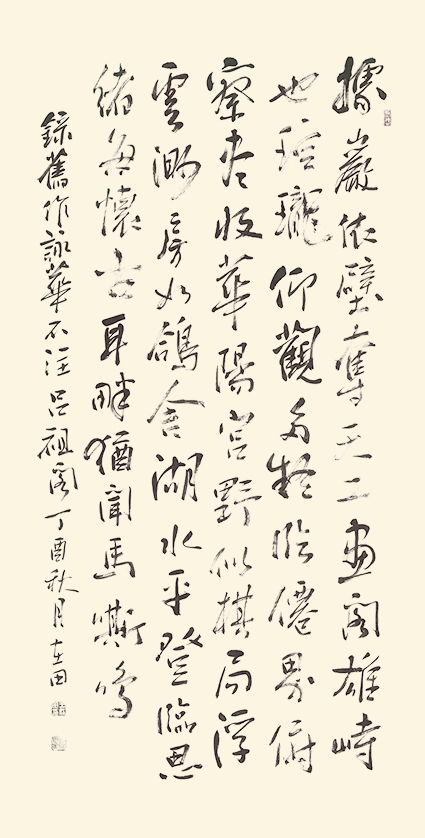 據巖依壁奪天工畫閣雄峙
也玲瓏仰觀多疑臨僊界俯
察盡收華陽宮野似棋局浮
雲渺房如鴿舍湖水平登臨思
緒每懷古耳畔猶聞馬嘶鳴
錄舊作詠華不注呂祖閣丁酉秋月在田